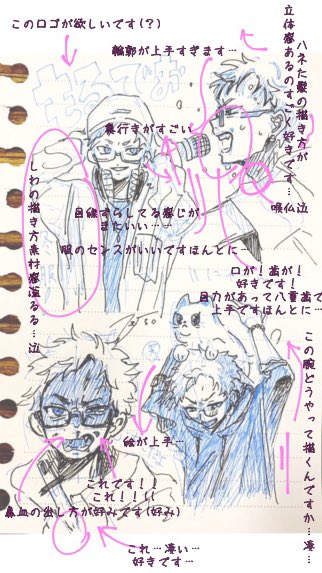 このロゴが欲しいです(?)
輪郭が上手すぎます…
ハネた髪の描き方が
立体感あるのすごく好きです…
裏行きがすごい
喉仏泣
しわの描き方素材感溢るる…泣
目線ずらしてる感じが
またいい……
服のセンスがいいですほんとに…
口が!歯が!
好きです!
目力があって八重歯で
上手ですほんとに…
この腕どうやって描くんですか…凄…
絵が上手…
これです!!
これ!!!!
鼻血の出し方が好みです(好み)
これ…凄い…
好きです…